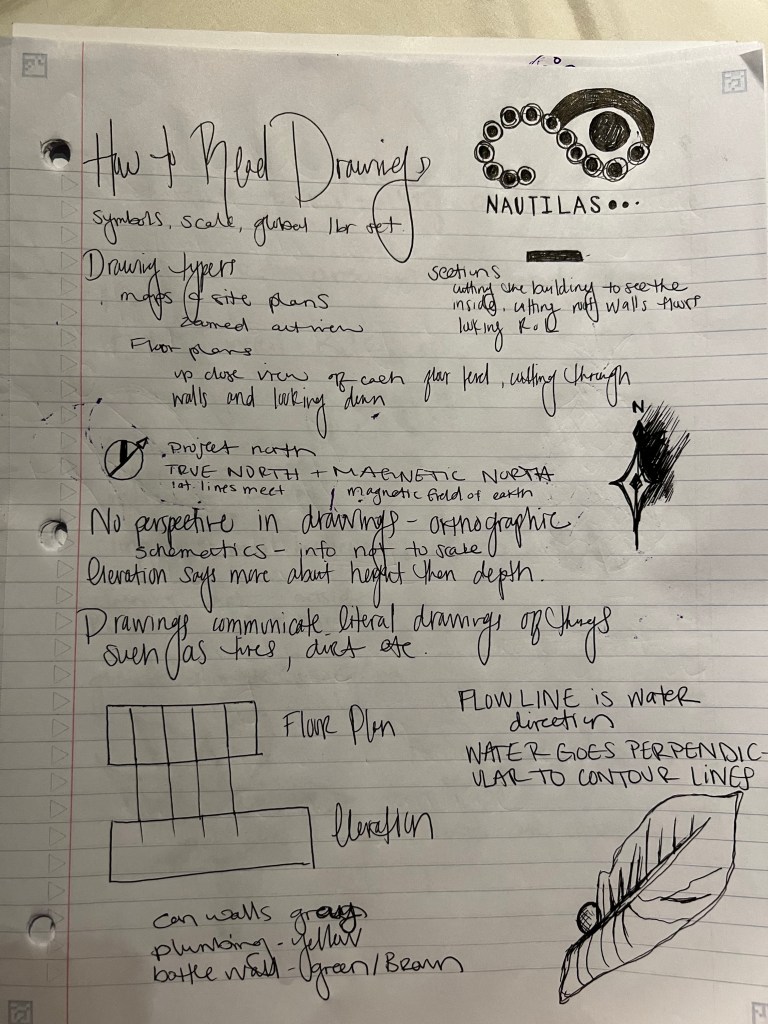 How to Read Drawings
NAUTILAS...
symbols, scale, global
Drawing types
. maps & site plans
zoomed out view
sections
cutting the building to see the
inside, cutting roof walls floors
looking
Floor plans
up close view of each floor level, cutting through
walls and looking down
N
. Project north
TRUE NORTH + MAGNETIC NORTH
lat. lines meet
magnetic field of earth
No perspective in drawings - orthographic
schematics - info not to scale
Elevation says more about height then depth.
Drawings communicate literal drawings of things
such as tires, dirt etc.
FLOW LINE is water
direction
WATER GOES PERPENDIC-
ULAR TO CONTOUR LINES
Floor Plan
Elevation
can walls gray
plumbing - yellow
bottle wall - green/Brown